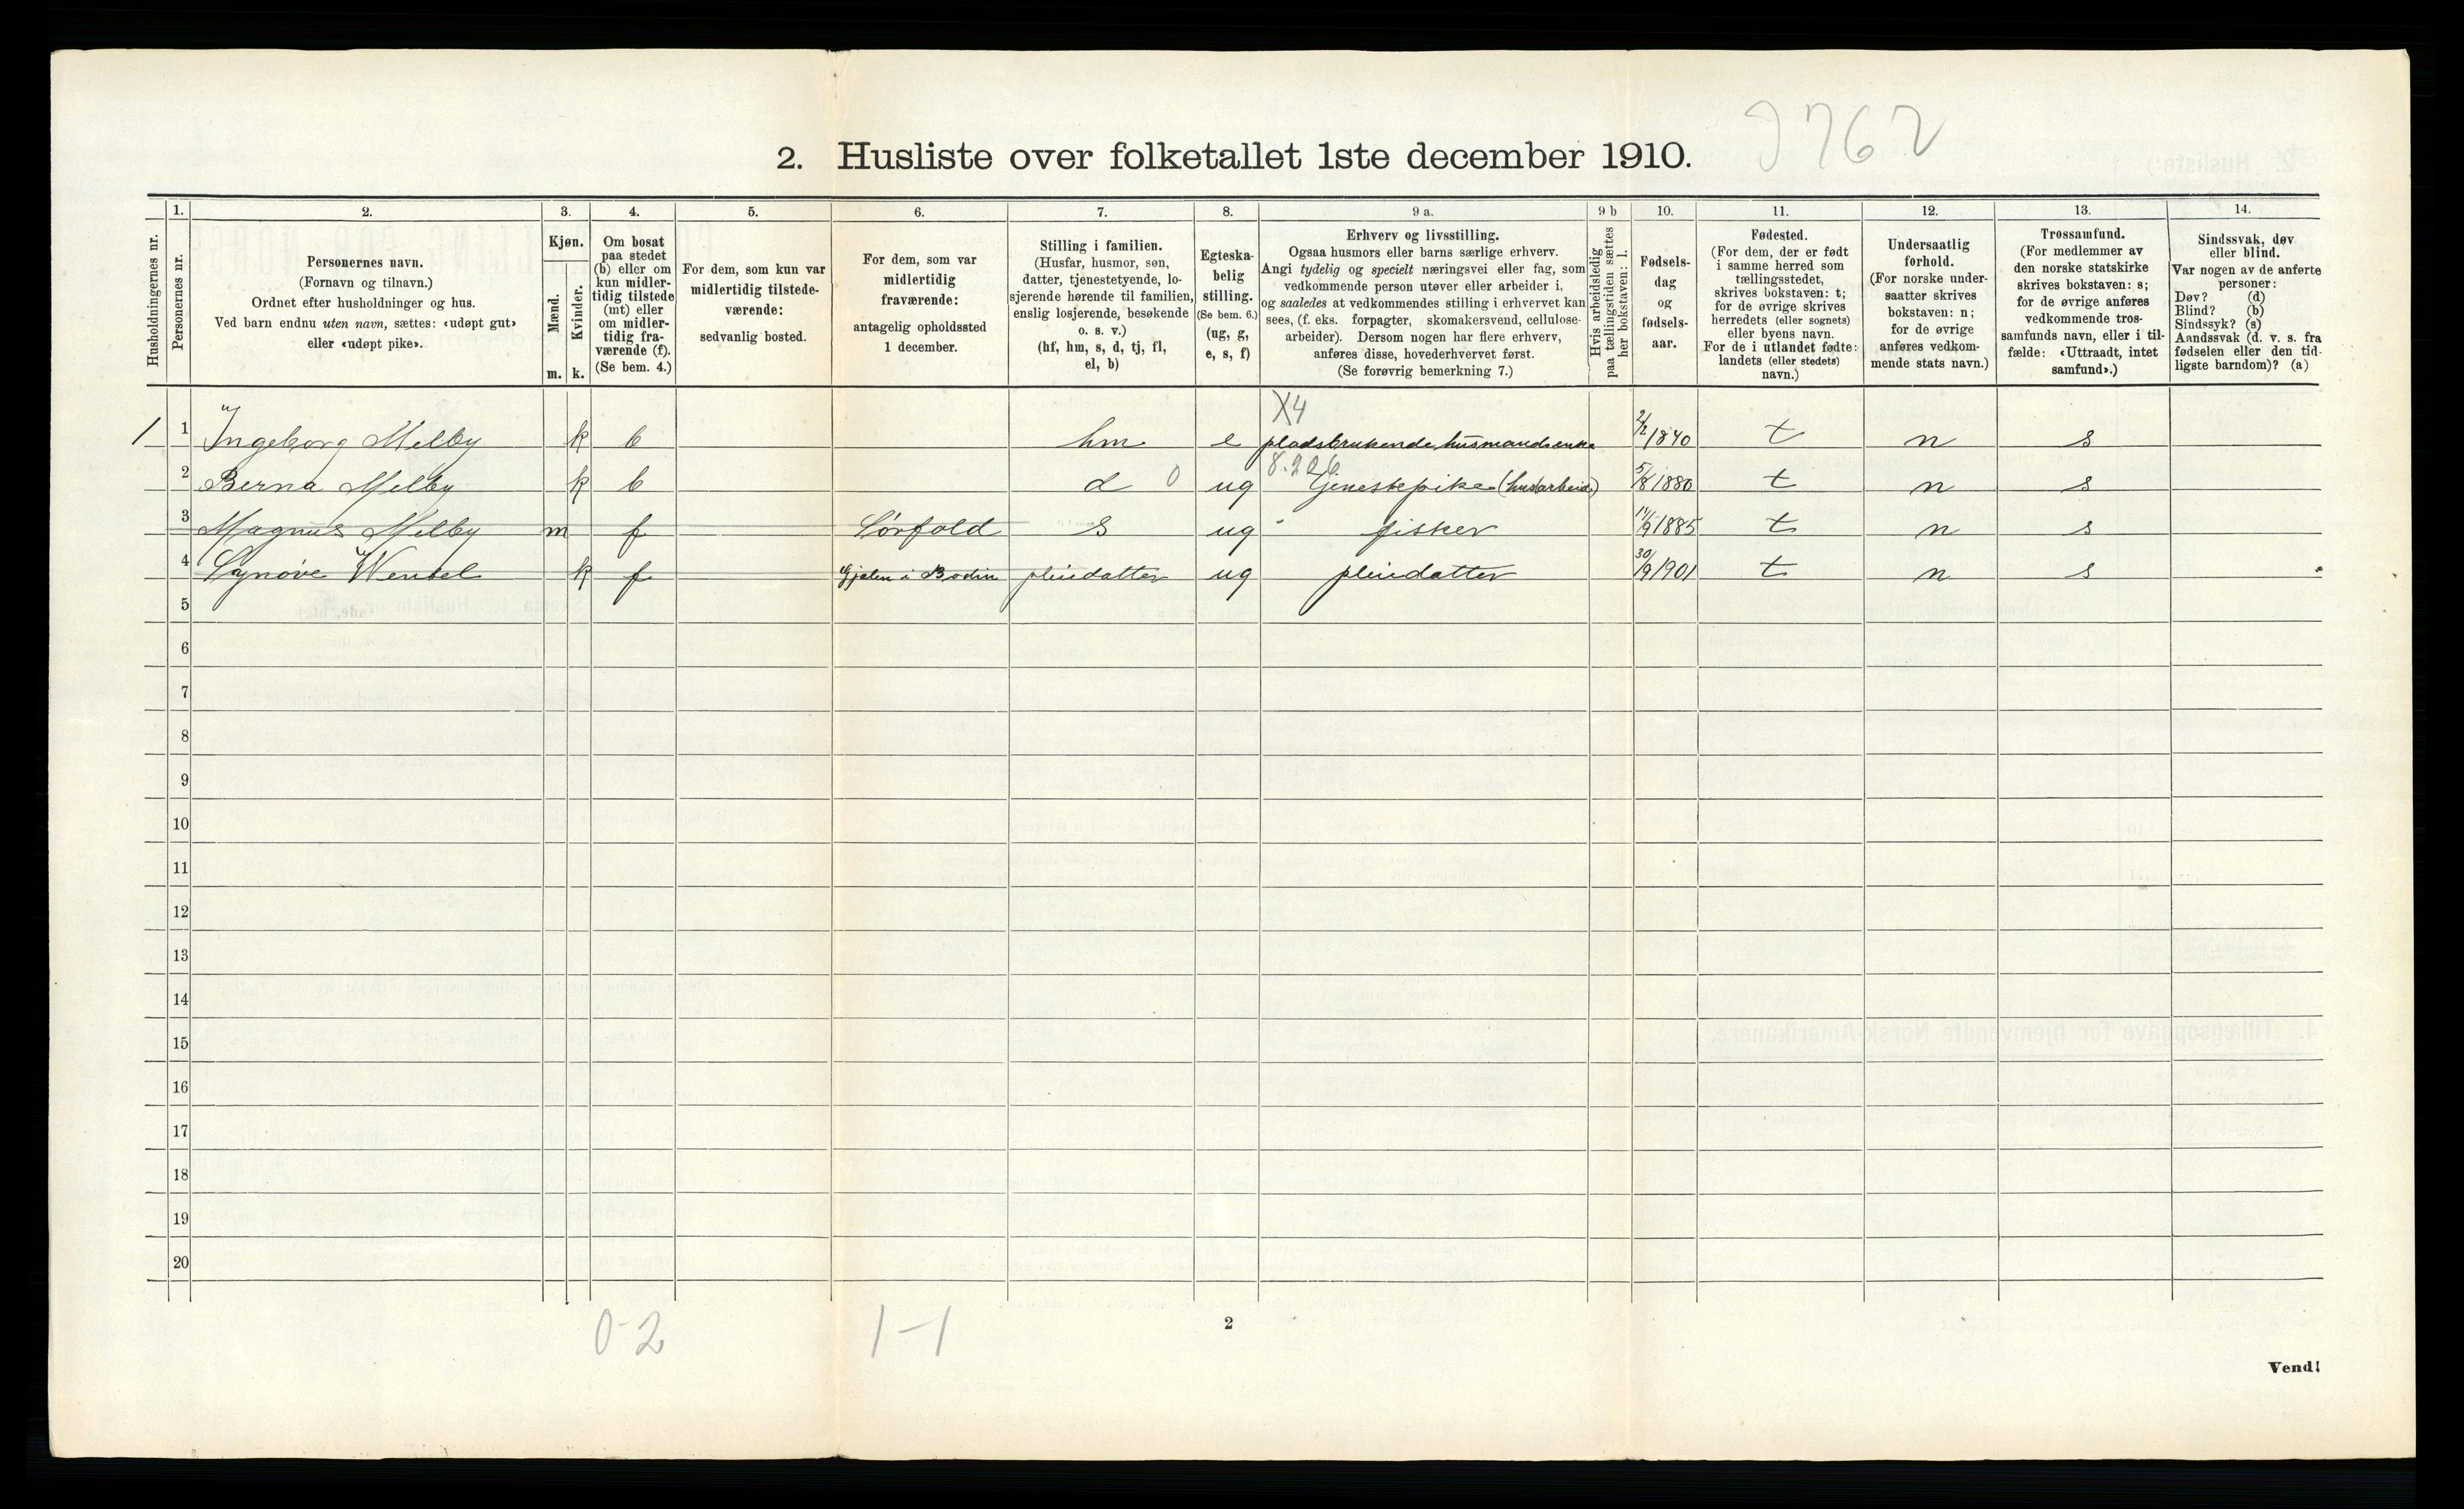 3762
2. Husliste over folketallet 1ste december 1910.
Husholdningernes nr.
1.
Personernes nr.
2.
Personernes navn.
(Fornavn og tilnavn.)
Ordnet efter husholdninger og hus.
Ved barn endnu uten navn, sættes: «udøpt gut»
eller «udøpt pike».
3.
Kjøn.
Mænd.
Kvinder.
m. k.
4.
Om bosat
paa stedet
(b) eller om
kun midler-
tidig tilstede
(mt) eller
om midler-
tidig fra-
værende (f).
(Se bem. 4.)
5.
For dem, som kun var
midlertidig tilstede-
værende:
sedvanlig bosted.
6.
For dem, som var
midlertidig
fraværende:
antagelig opholdssted
1 december.
7.
Stilling i familien.
(Husfar, husmor, søn,
datter, tjenestetyende, lo-
sjerende hørende til familien,
enslig losjerende, besøkende
o. s. v.)
(hf, hm, s, d, tj, fl,
el, b)
8.
Egteska-
belig
stilling.
(Se bem. 6.)
(ug, g,
e, s, f)
9 a.
Erhverv og livsstilling.
Ogsaa husmors eller barns særlige erhverv.
Angi tydelig og specielt næringsvei eller fag, som
vedkommende person utøver eller arbeider i,
og saaledes at vedkommendes stilling i erhvervet kan
sees, (f. eks. forpagter, skomakersvend, cellulose-
arbeider). Dersom nogen har flere erhverv,
anføres disse, hovederhvervet først.
(Se forøvrig bemerkning 7.)
9 b
Hvis arbeidsledig
paa tællingstiden sættes
her bokstaven: l.
10.
Fødsels-
dag
og
fødsels-
aar.
11.
Fødested.
(For dem, der er født
i samme herred som
tællingsstedet,
skrives bokstaven: t;
for de øvrige skrives
herredets (eller sognets)
eller byens navn.
For de i utlandet fødte:
landets (eller stedets)
navn.)
12.
Undersaatlig
forhold.
(For norske under-
saatter skrives
bokstaven: n;
for de øvrige
anføres vedkom-
mende stats navn.)
13.
Trossamfund.
(For medlemmer av
den norske statskirke
skrives bokstaven: s;
for de øvrige anføres
vedkommende tros-
samfunds navn, eller i til-
fælde: «Uttraadt, intet
samfund».)
14.
Sindssvak, døv
eller blind.
Var nogen av de anførte
personer:
Døv? (d)
Blind? (b)
Sindssyk? (s)
Aandssvak (d. v. s. fra
fødselen eller den tid-
ligste barndom)? (a)
X4
1 1 Ingeborg Melby k b hm e pladsbrukende husmandsenke 2/2 1840 t n s
8.226
2 Berna Melby k b d 0 ug Tjenestepike (husarbeide) 5/8 1880 t n s
3 Magnus Melby m f Sørfold s ug fisker 14/9 1885 t n s
4 Synøve Wensel k f Gjelen i Bodin pleiedatter ug pleiedatter 30/9 1901 t n s
5
6
7
8
9
10
11
12
13
14
15
16
17
18
19
20
0-2 1-1
2
Vend!